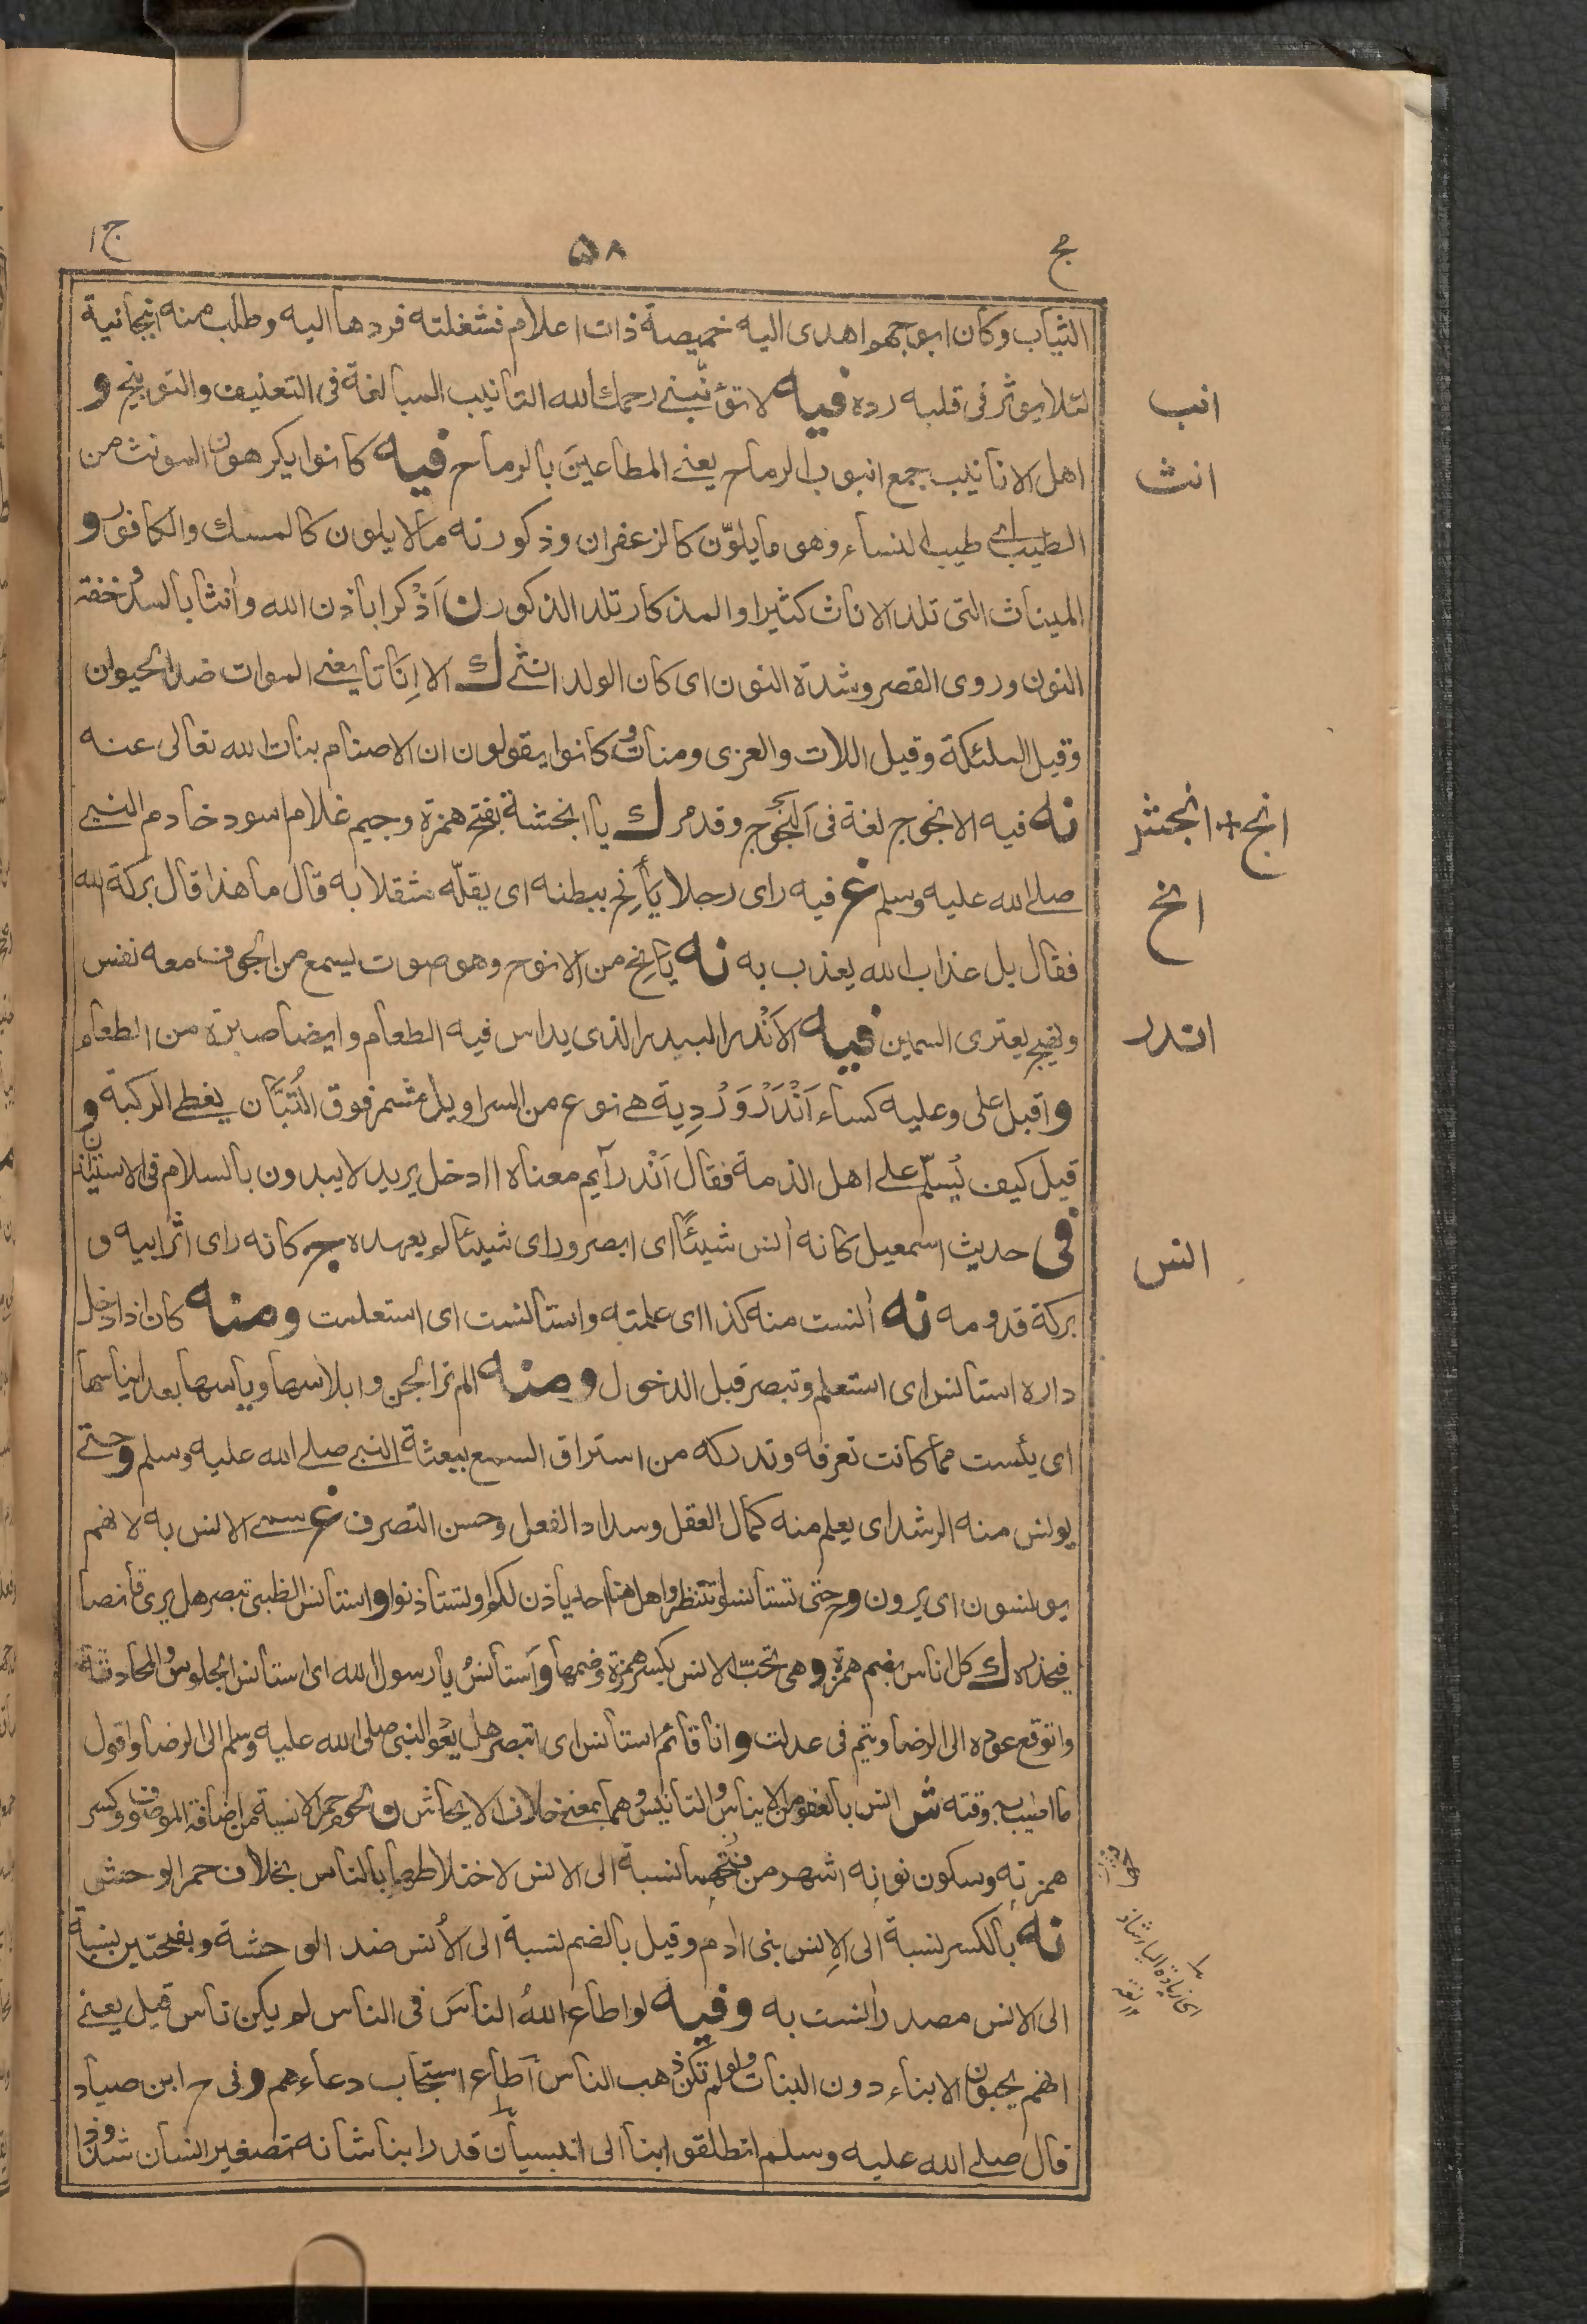 مج ٥٨ ج ١
الثياب وكان ابو جهم اهدى اليه خميصة ذات اعلام فشغلته فردها اليه وطلب منه انبجانية
لئلا يوثر فى قلبه رده فيه لا تؤنّبنى رحمك الله التانيب المبالغة فى التعنيف والتوبيخ و
انب
اهل الانانيب جمع انبوب الرماح يعنى المطاعين بالرماح فيه كانوا يكرهون المونث من
انث
الطيب اى طيب النساء وهو ما يلوّن كالزعفران وذكورته مالا يلون كالمسك والكافور و
الميناث التى تلد الاناث كثيرا والمذكار تلد الذكور ن اَذْكرا باذن الله وأنثا بالمد وخفة
النون وروى القصر وشدة النون اى كان الولد انثى ك الا اِنَاثا يعنى الموات ضد الحيوان
وقيل الملئكة وقيل اللات والعزى ومنات وكانوا يقولون ان الاصنام بنات الله تعالى عنه
نه فيه الانجوج لغة فى اَلَنْجُوج وقد مر ك يا انجشة بفتح همزة وجيم غلام اسود خادم النبى
انج + انجش
صلى الله عليه وسلم غ فيه راى رجلا يَأْنِح ببطنه اى يقلّه مثقلا به قال ما هذا قال بركة الله
انح
فقال بل عذاب الله يعذب به نه يانح من الانوح وهو صوت يسمع من الجوف معه نفس
ونهيج يعترى السمين فيه الاَنْدر البيدر الذى يداس فيه الطعام وايضا صبرة من الطعام
اندر
و اقبل على وعليه كساء اَنْدَرْوَرْدِية هى نوع من السراويل مشمر فوق التُبَّان يغطى الركبة و
قيل كيف يُسلّم على اهل الذمة فقال اَنْدرآيم معناه اادخل يريد لا يبدون بالسلام فى الاستيذان
فى حديث اسمعيل كانه أنس شيئًا اى ابصر وراى شيئا لم يعهده ج كانه راى اثر ابيه و
انس
بركة قدومه نه أنست منه كذا اى علمته واستانست اى استعلمت ومنه كان اذا دخل
داره استانس اى استعلم وتبصر قبل الدخول ومنه الم تر الجن وابلاسها وياسها بعد ايناسها
اى يئست مما كانت تعرفه وتدركه من استراق السمع ببعثة النبى صلى الله عليه وسلم وحتى
يونس منه الرشد اى يعلم منه كمال العقل وسداد الفعل وحسن التصرف غ سمى الانس به لانهم
يونسون اى يرون وحتى تستانسوا تنتظروا هل هنا احد ياذن لكم او تستاذنوا واستانس الظبى تبصر هل يرى قانصا
فيحذره ك كل اناس بضم همزة وهى تحبّ الانس بكسر همزة وضمها واَستانسُ يا رسول الله اى استانس الجلوس والمحادثة
واتوقع عوده الى الرضا وتم فى عدلت وانا قائم استانس اى اتبصر هل يعود النبى صلى الله عليه وسلم الى الرضا واقول
ما اطيب به وقته ش انس بالغضو من الايناس والتانيس وهما بمعنى خلاف الايحاش ن لحوم حمر الانسية من اضافة الموصوف وكسر
همزته وسكون نونه اشهر من فتحهما نسبة الى الانس لاختلاطها بالناس بخلاف حمر الوحش
نه بالكسر نسبة الى الاِنس بنى ادم وقيل بالضم نسبة الى الأُنس ضد الوحشة وبفتحتين نسبة
الى الانس مصدر أنست به وفيه لو اطاع اللهُ الناسَ فى الناس لم يكن ناس قيل يعنى
اى زيادة الياء شاذ
انهم يحبون الابناء دون البنات ولو لم تكن ذهب الناس أطاع استجاب دعاءهم وفى ح ابن صياد
قال صلى الله عليه وسلم انطلقوا بنا الى انيسيان قد رابنا شانه تصغير انسان شذوذا